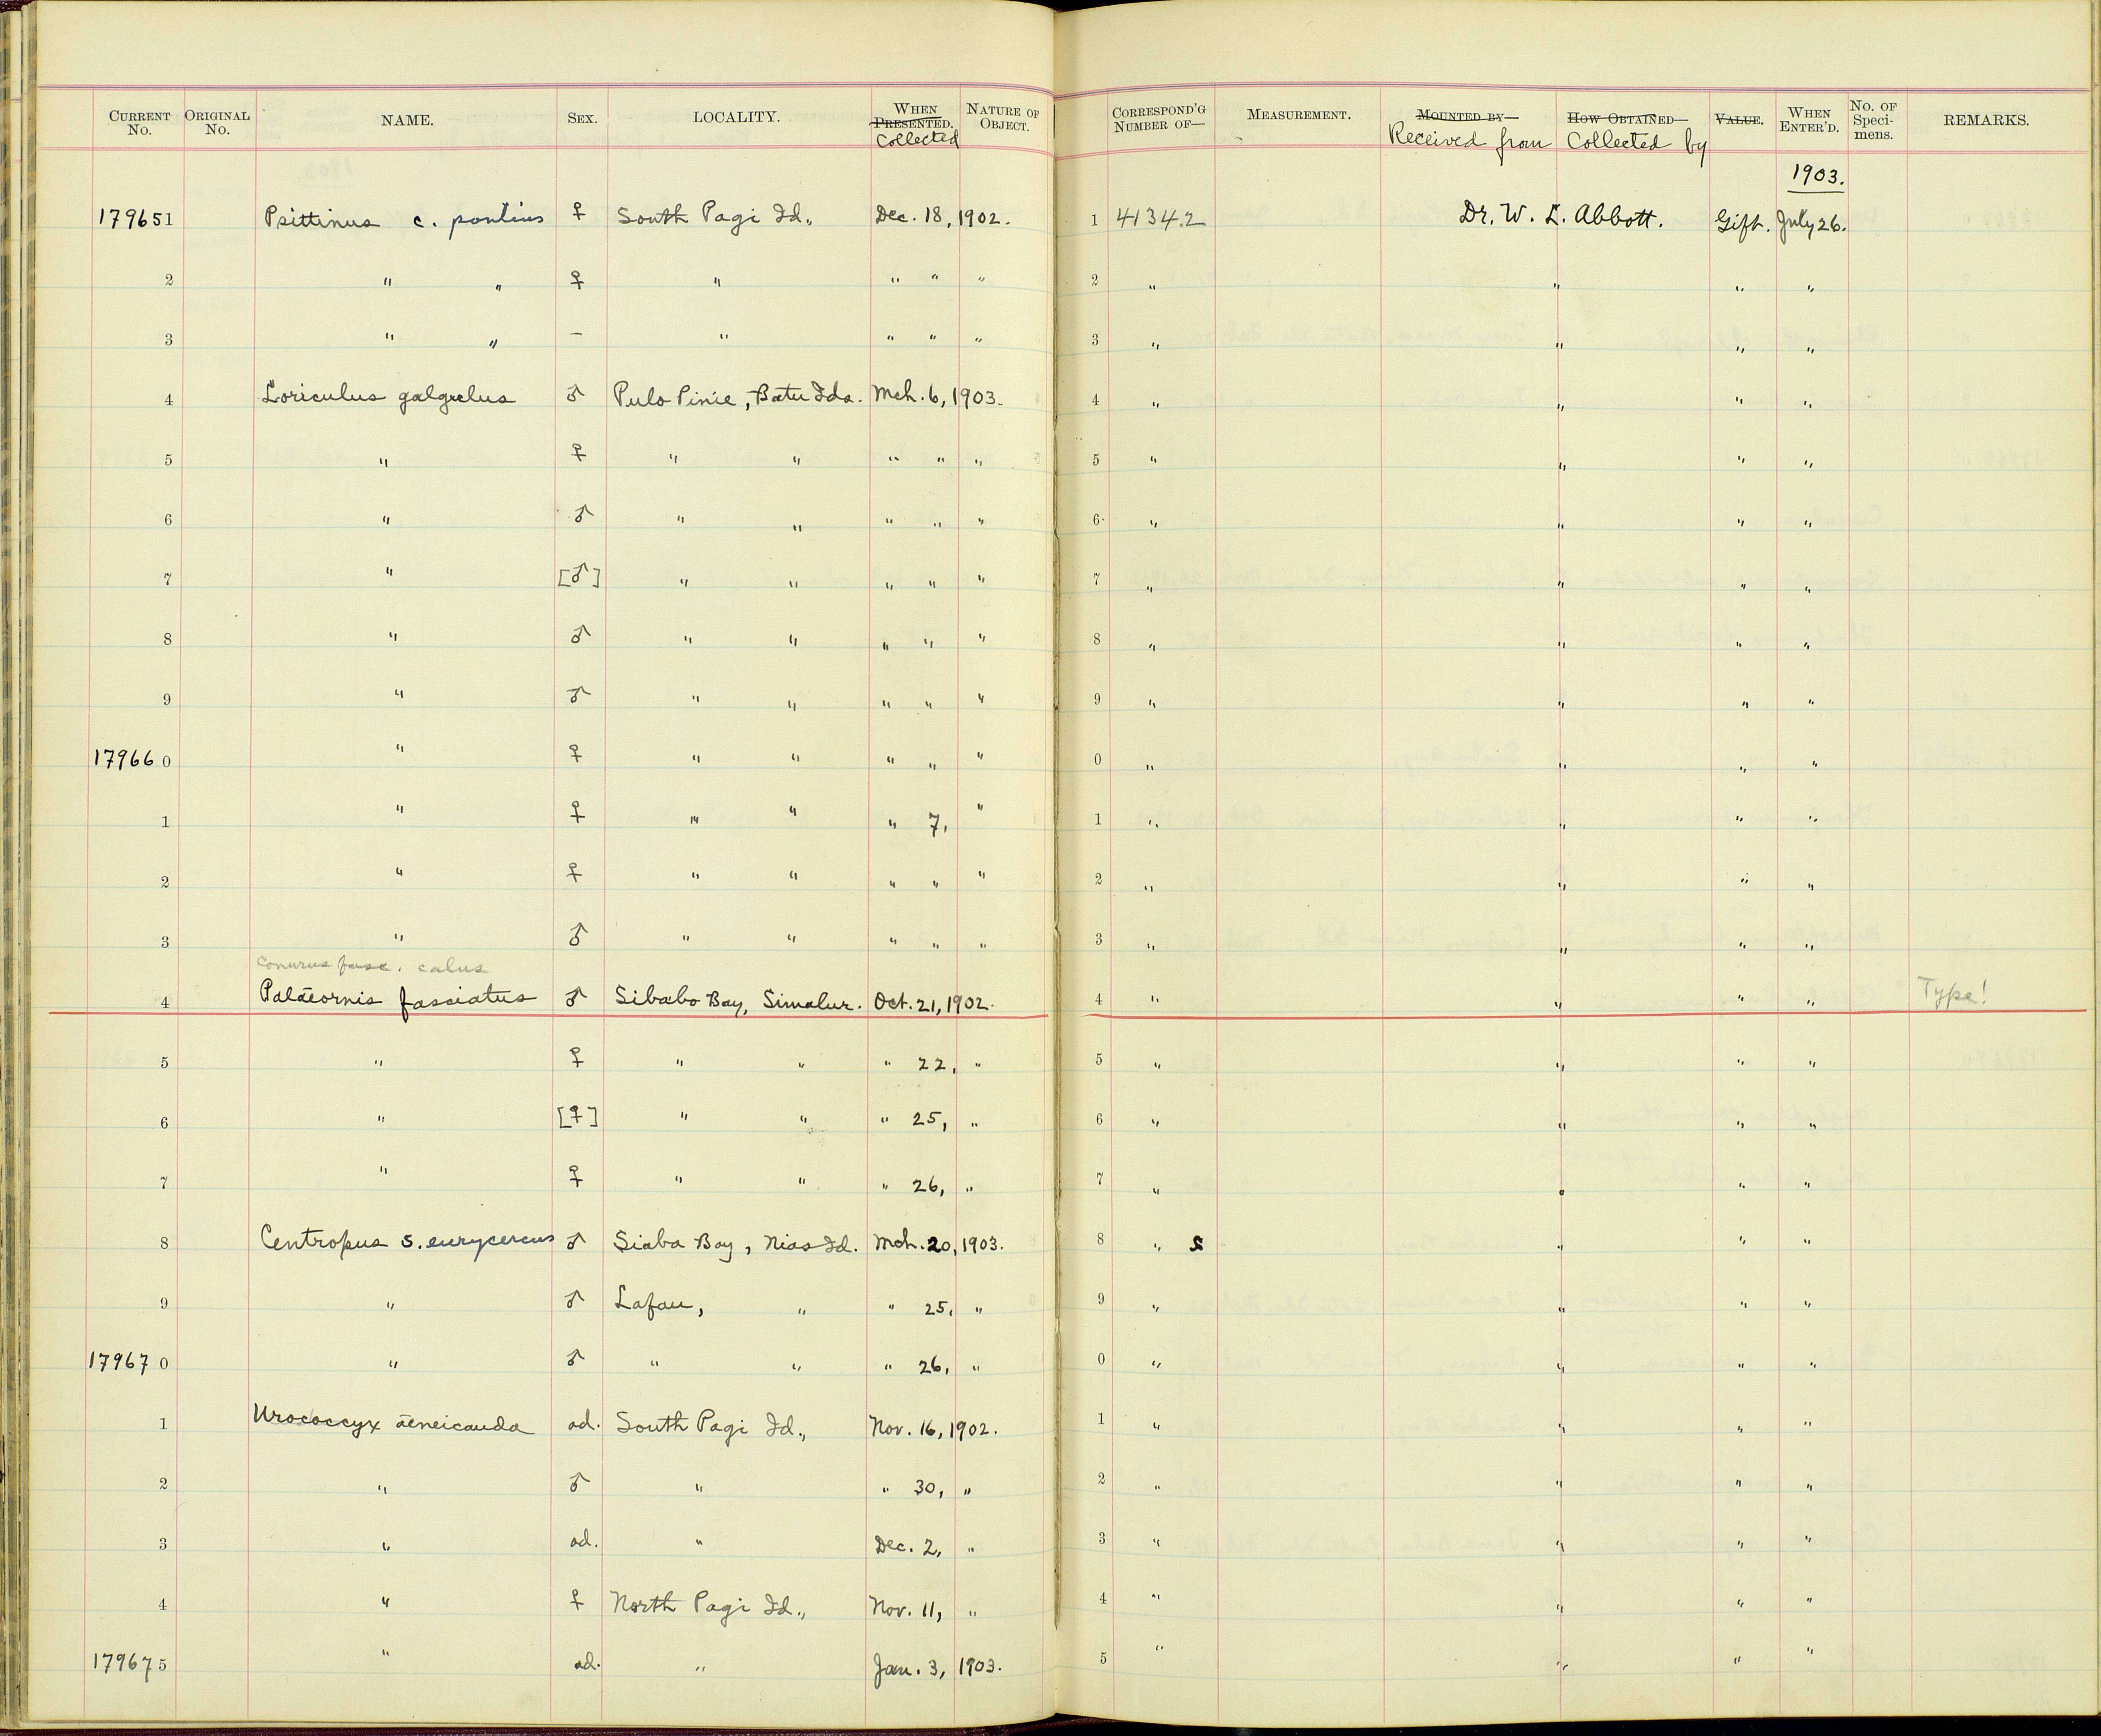 CURRENT No. ORIGINAL No. NAME. SEX. LOCALITY. WHEN PRESENTED. Collected NATURE OF OBJECT. CORRESPOND'G NUMBER OF— MEASUREMENT. MOUNTED BY— Received from HOW OBTAINED— Collected by VALUE. WHEN ENTER'D. No. OF Speci-mens. REMARKS.
1903.
179651 Psittinus c. pontius ♀ South Pagi Id., Dec. 18, 1902. 1 41342 Dr. W. L. Abbott. Gift. July 26.
2 " " ♀ " " " " 2 " " " "
3 " " — " " " " 3 " " " "
4 Loriculus galgulus ♂ Pulo Pinie, Batu Ids. Mch. 6, 1903. 4 " " " "
5 " ♀ " " " " " 5 " " " "
6 " ♂ " " " " " 6 " " " "
7 " [♂] " " " " " 7 " " " "
8 " ♂ " " " " " 8 " " " "
9 " ♂ " " " " " 9 " " " "
179660 " ♀ " " " " " 0 " " " "
1 " ♀ " " " 7, " 1 " " " "
2 " ♀ " " " " " 2 " " " "
3 " ♂ " " " " " 3 " " " "
Conurus fasc. calus
4 Palæornis fasciatus ♂ Sibabo Bay, Simalur. Oct. 21, 1902. 4 " " " " Type!
5 " ♀ " " " 22, " 5 " " " "
6 " [♀] " " " 25, " 6 " " " "
7 " ♀ " " " 26, " 7 " " " "
8 Centropus s. eurycercus ♂ Siaba Bay, Nias Id. Mch. 20, 1903. 8 " " " "
9 " ♂ Lafau, " " 25, " 9 " " " "
179670 " ♂ " " " 26, " 0 " " " "
1 Urococcyx æneicauda ad. South Pagi Id., Nov. 16, 1902. 1 " " " "
2 " ♂ " " 30, " 2 " " " "
3 " ad. " Dec. 2, " 3 " " " "
4 " ♀ North Pagi Id., Nov. 11, " 4 " " " "
179675 " ad. " Jan. 3, 1903. 5 " " " "